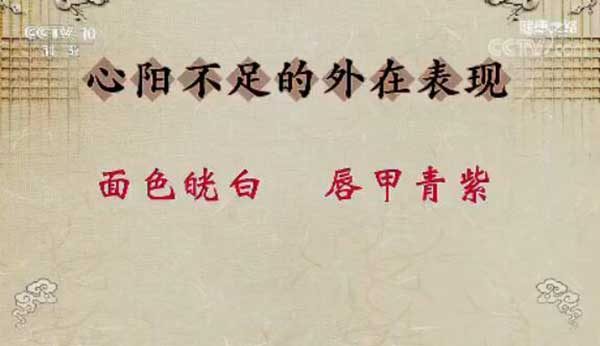 CCTV 10
科教
健康之路
CCTV.com
心阳不足的外在表现
面色㿠白 唇甲青紫